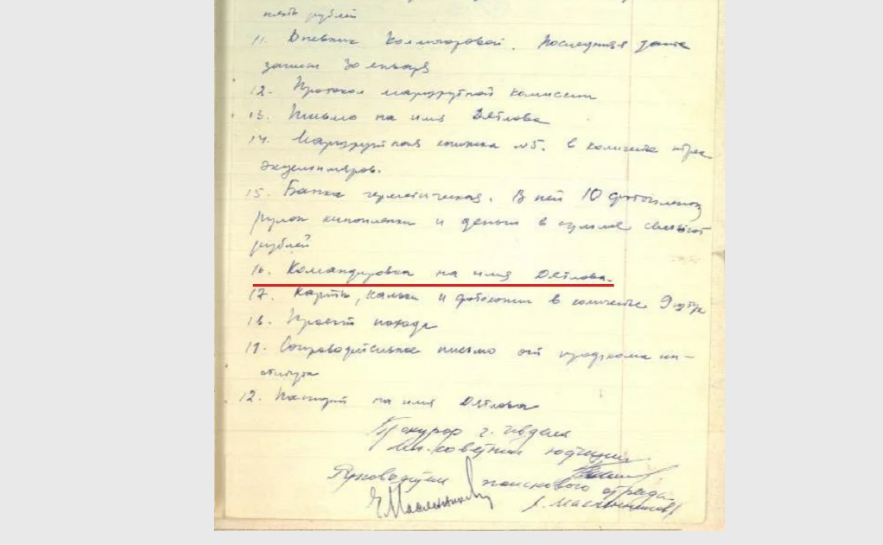 пять рублей
11. Дневник Колмогоровой. Последняя дата
записи 30 января
12. Протокол маршрутной комиссии
13. Письмо на имя Дятлова
14. Маршрутная книжка №5. в количестве трех
экземпляров.
15. Банка герметическая. В ней 10 фотопленок
рулон кинопленки и деньги в сумме
рублей
16. Командировка на имя Дятлова.
17. Карты, кальки и фотокопии в количестве 9 штук
18. Проект похода
19. Сопроводительное письмо от профкома ин-
ститута
12. Паспорт на имя Дятлова
Прокурор г. Ивделя
Мл. советник юстиции
Руководитель поискового отряда
Е. Масленников